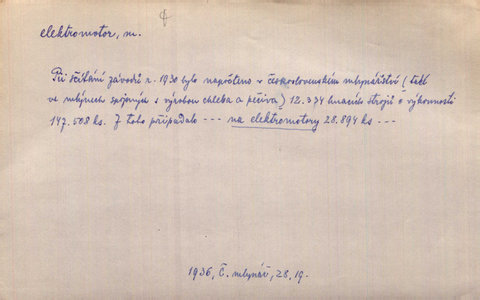 elektromotor, m.
Při sčítání závodů r. 1930 bylo napočteno v československém mlynářství (též
ve mlýnech spojených s výrobou chleba a pečiva) 12.374 hnacích strojů o výkonnosti
147.508 ks. Z toho připadalo --- na elektromotory 28.894 ks ---
1936, Č. mlynář, 28, 19.